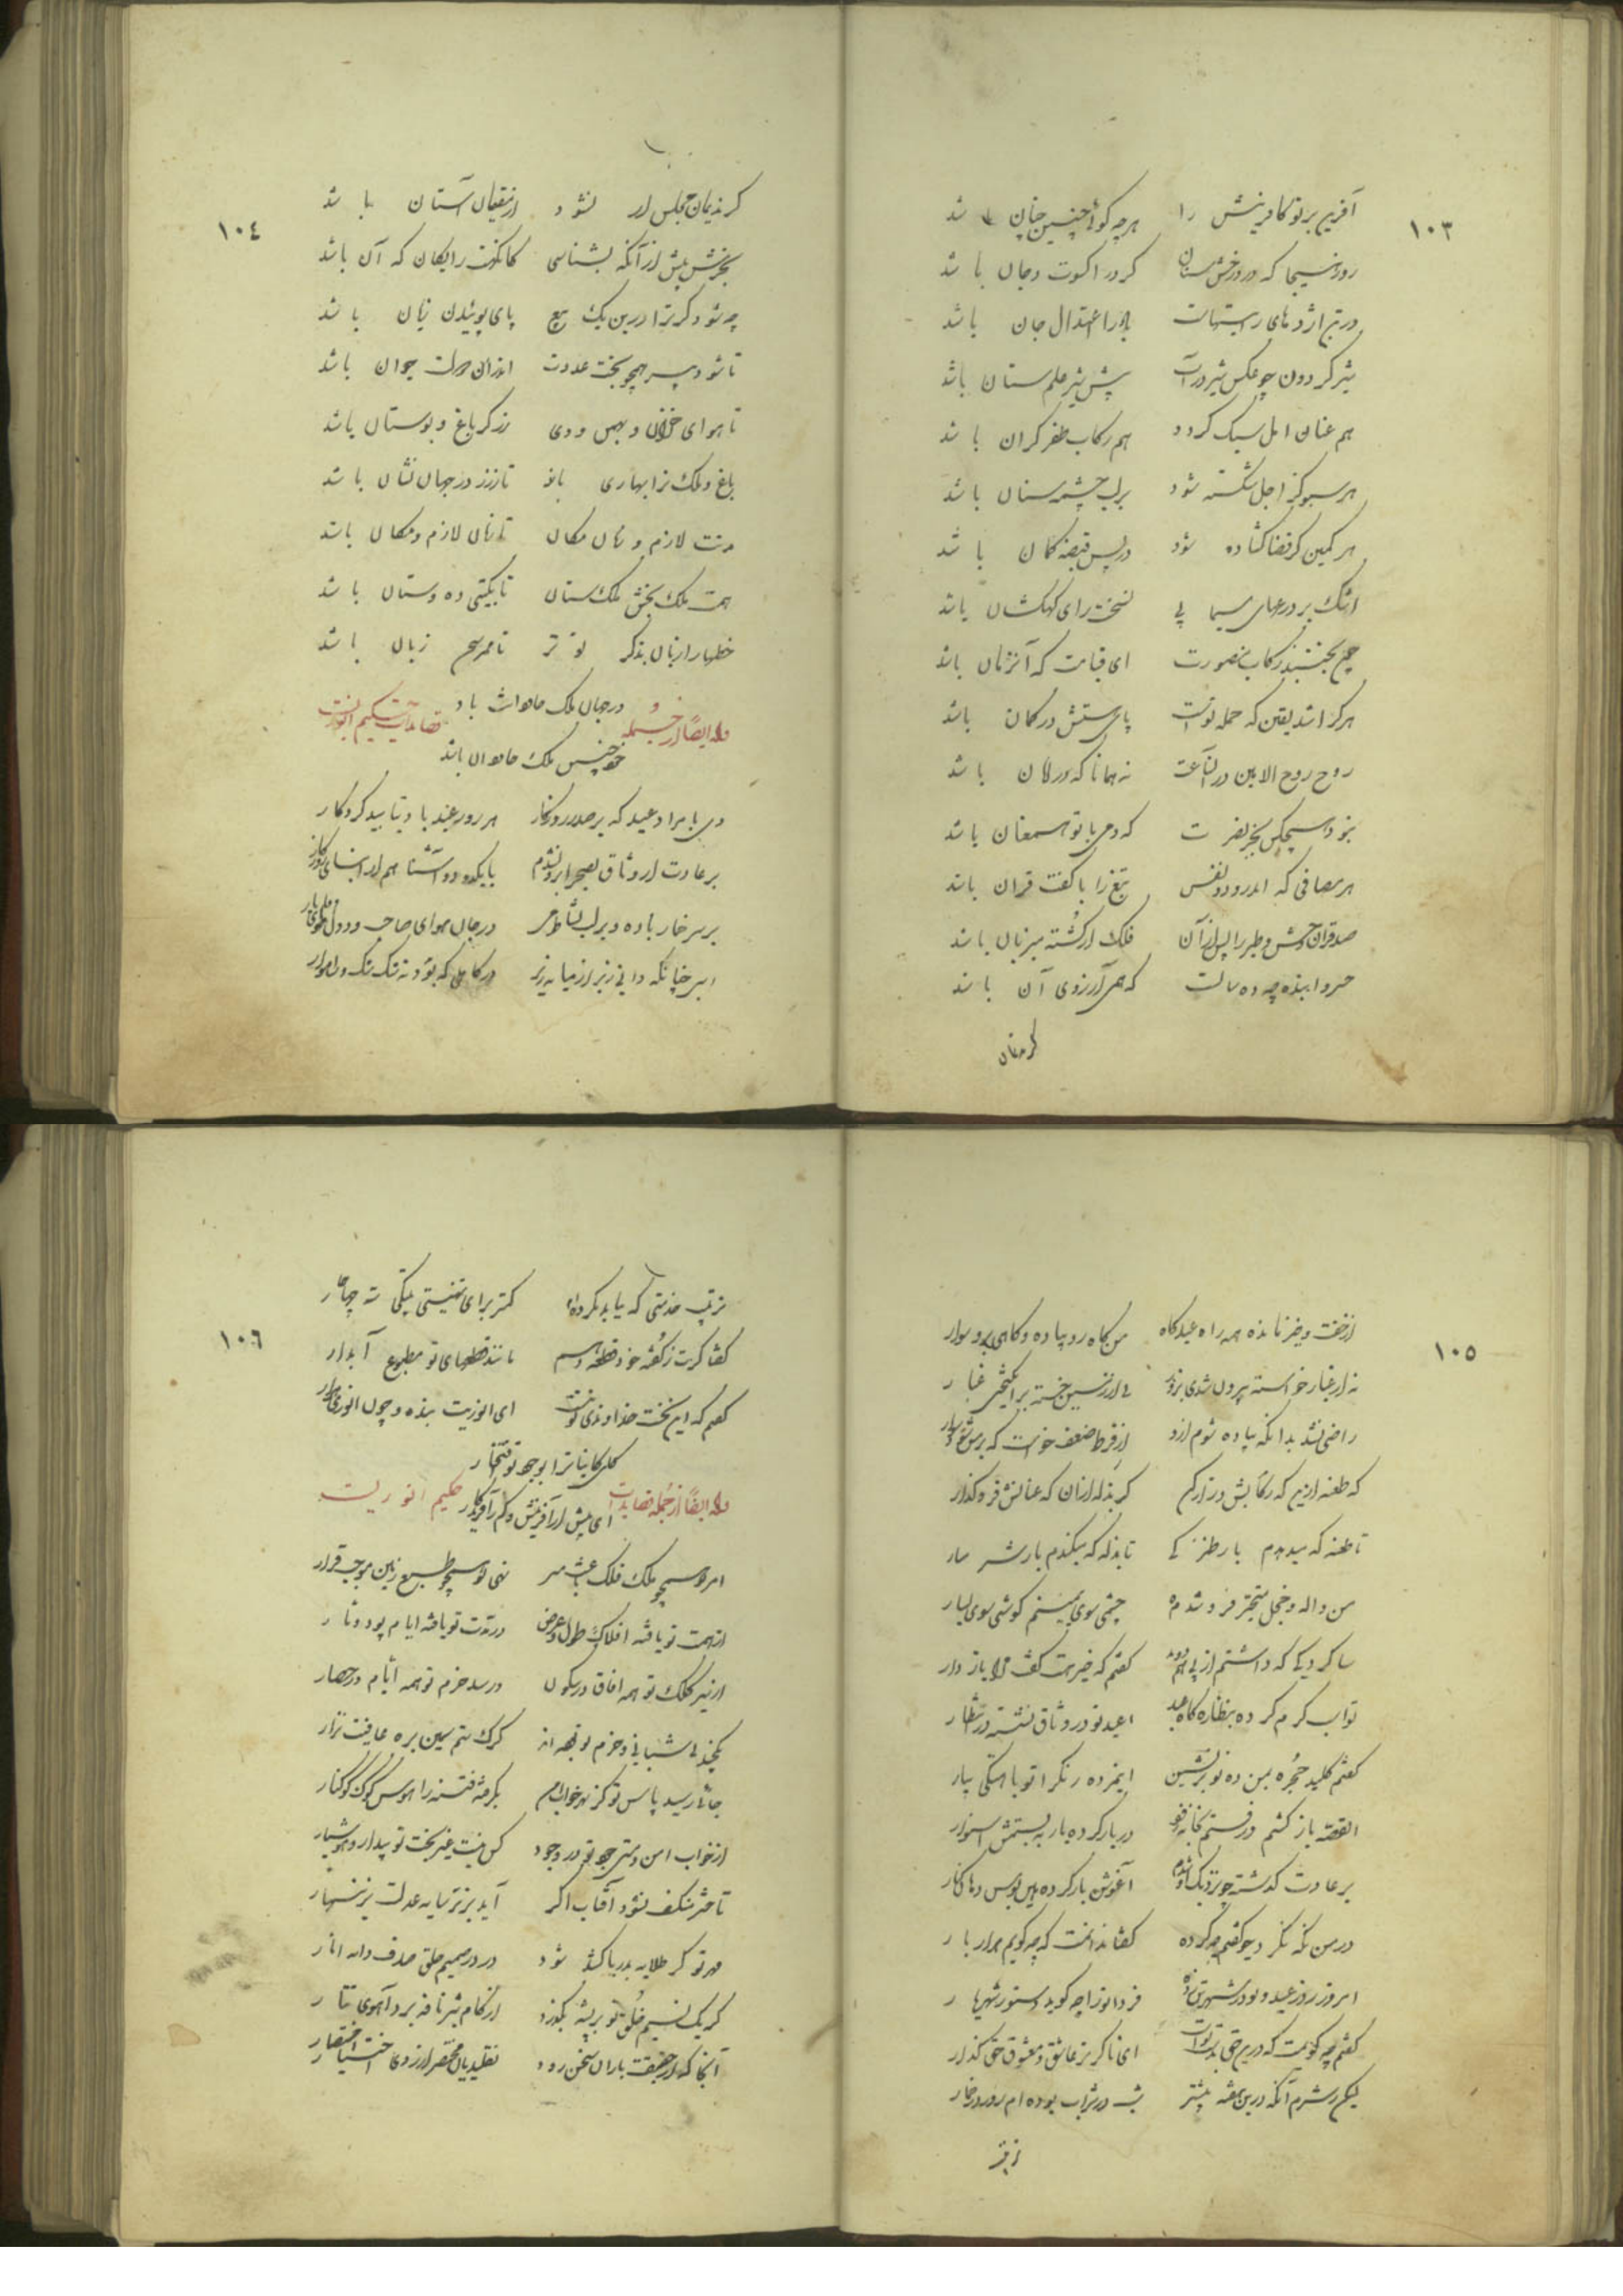 ١٠٣
آفرین بر تو کافرینش را هرچه گوئی چنین چنان باشد
روز هیجا که در درخش سنان گرد را کسوت دخان باشد
در تن اژدهای رایتهات باد را اعتدال جان باشد
شیر گردون چو عکس شیر در آب پیش شیر علم ستان باشد
هم عنان امل سبک گردد هم رکاب ظفر گران باشد
هر سبو کز اجل شکسته شود بر لب چشمه سنان باشد
هر کمین کز قضا گشاده شود در پس قبضه کمان باشد
اشک بر درعهای سیمابی نسخت رای کهکشان باشد
چون بجنبد رکاب منصورت ای قیامت که آنزمان باشد
هر کرا شد یقین که حمله تست پای هستیش در گمان باشد
روح روح الامین در آنساعت نه همانا که در امان باشد
نبود هیچکس بجز نصرت که دمی با تو همعنان باشد
هر مصافی که اندرو دو نفس تیغ را با کفت قران باشد
صد قران وحش و طیر را پس از آن فلک از کشته میزبان باشد
خسروا بنده چو ده سالست که همی آرزوی آن باشد
کز ندیمان
١٠٤
کز ندیمان مجلس ار نشود از مقیمان آستان باشد
بخرش پیش از آنکه بشناسی کانگهت رایگان که آن باشد
چه شود گر ترا درین یک بیع پای بوئیدن زیان باشد
تا شود پیر همچو بخت عدوت اندران دولت جوان باشد
تا هوای خزان و بهمن و دی زرگر باغ و بوستان باشد
باغ ملک ترا بهاری باد تا نزز در جهان نشان باشد
مدت لازم و زمان مکان تا زمان لازم و مکان باشد
همت ملک بخش ملک ستان تا بگیتی ده و ستان باشد
خطبها را زبان بذکر تو تر تا ممر سخن زبان باشد
در جهان ملک جاودانت باد و
خود چنین ملک جاودان باشد
وله ایضًا از جمله قصایدات حکیم انوریست
دی بامداد عید که بر صدر روزگار هر روز عید باد بتایید کردگار
بر عادت از وثاق بصحرا برون شدم با یکدو دو آشنا هم از ابنای روزگار
بر سر خمار باده و بر لب نشاط می در جان هوای صاحب و در دل هوای یار
اسبی چنانکه دانی زیر از میانه زیر در کاهلی که بود نه سکسک و نه راهوار
١٠٥
از خفت و خیز مانده همه راه عیدگاه من گاه زو پیاده و گاهی برو سوار
نه از غبار خواسته بیرون شدی بزور نی از زمین خسته برانگیختی غبار
راضی نشد بدانکه پیاده شوم ازو از فرط ضعف خواست که بر من شود سوار
گه طعنه ازین که رکابش دراز کن گه بذله ازان که عنانش فرو گذار
تا طعنه که میدهدم باز طنز کی تا بذله که میکندم باز شرمسار
من واله و خجل بتحیر فرو شده چشمی سوی یمینم گوشی سوی یسار
شاگردیکی که داشتم از پی همی دوید گفتم که خیر هست گفت مرا باز دار
تو اب کرم کرده بنظاره گاه عید عید تو در وثاق نشسته در انتظار
گفتم کلید حجره بمن ده تو بر نشین این مرده ریگ را تو باهستگی بیار
القصه باز گشتم و رفتم بخانه زود در باز کرده باز به بستمش استوار
بر عادت گذشته چو نزدیک او شدم آغوش باز کرده به بین بوس و هان کنار
در من نگه نکرد و چو گفتم چه کرده گفتا ندانمت که چه گویم هزار بار
امروز روز عید و تو در شهر تن زده فردا ترا چه گوید دستور شهریار
گفتم چه گویمت که درین حق بدست تست ای ناگزیر عاشق و معشوق حق گذار
لیکن ز شرم آنکه درین هفته بیشتر شب در شراب بوده ام روز در خمار
ترتیب
١٠٦
ترتیب خدمتی که بباید نکرده ام کمتر برای تهنیتی بیتکی سه چهار
گفتا گرت ز گفته خود قطعه دهم مانند قطعهای تو مطبوع آبدار
گفتم که این نخست خداوندی تو نیست ای انوریت بنده و چون انوری هزار
کلی کاینات را بوجود تو افتخار
ای بیش از آفرینش و کم ز آفریدگار
وله ایضًا از جمله قصایدات حکیم انوریست
امر تو همچو ملک فلک باعث مسیر نهی تو همچو طبع زمین موجب قرار
از همت تو یافته افلاک طول و عرض در مدت تو بافته ایام پود و تار
از تیر کلک تو همه آفاق در سکون در سد حزم تو همه ایام در حصار
یکچند بی شبانی حزم تو بوده اند گرگ ستم سمین بره عافیت نزار
جائی رسید پاس تو کز بهر خواب امن بگرفته فتنه را هوس کوک و کوکنار
از خواب امن و مستی جود تو در وجود کس نیست غیر بخت تو بیدار و هوشیار
تا حشر منکسف نشود آفتاب اگر آید بزیر سایه عدلت بزینهار
مهر تو گر طلایه بدریا کشد شود در در صمیم حلق صدف دانه انار
گر یک نسیم خلق تو بر بیشه بگذرد از کام شیر نافه برد آهوی تتار
آنجا که از حقیقت باران سخن رود تقلیدیان مختصر از روی اختصار